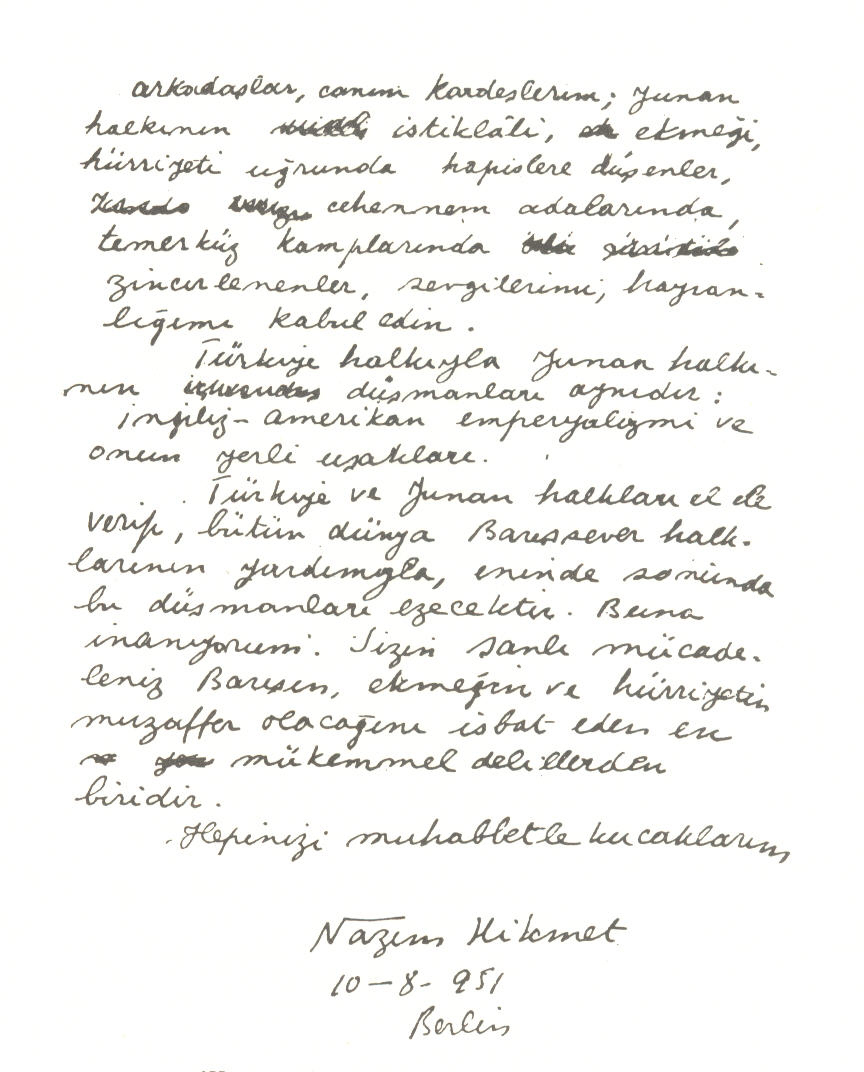 arkadaşlar, canım kardeşlerim; Yunan
halkının istiklâli, ekmeği,
hürriyeti uğrunda hapislere düşenler,
cehennem adalarında,
temerküz kamplarında
zincirlenenler, sevgilerimi, hayran-
lığımı kabul edin.
Türkiye halkıyla Yunan halkı-
nın düşmanları aynıdır:
İngiliz-amerikan emperyalizmi ve
onun yerli uşakları.
Türkiye ve Yunan halkları el ele
verip, bütün dünya Barışsever halk-
larının yardımıyla, eninde sonunda
bu düşmanları ezecektir. Buna
inanıyorum. Sizin şanlı mücade-
leniz Barışın, ekmeğin ve hürriyetin
muzaffer olacağını isbat eden en
mükemmel delillerden
biridir.
Hepinizi muhabbetle kucaklarım
Nazım Hikmet
10-8-951
Berlin